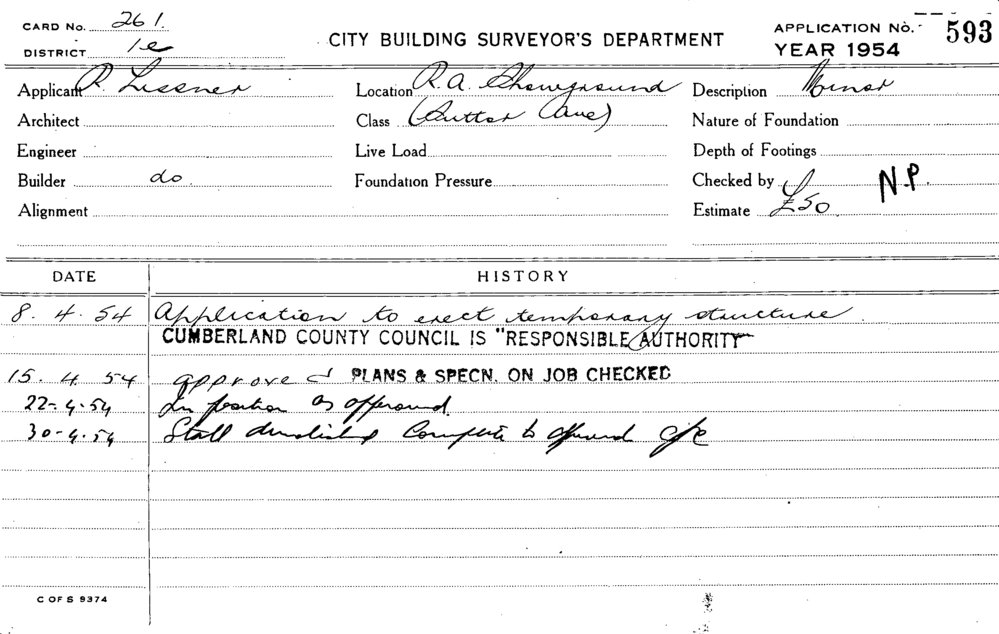 CARD No. 261.
DISTRICT 1e
CITY BUILDING SURVEYOR'S DEPARTMENT
APPLICATION No. 593
YEAR 1954
Applicant R. Lissner
Location R. A. Showground
Description Minor
Architect
Class (Butter Cane)
Nature of Foundation
Engineer
Live Load
Depth of Footings
Builder do.
Foundation Pressure
Checked by N.P.
Alignment
Estimate £50
DATE HISTORY
8. 4. 54 Application to erect temporary structure.
CUMBERLAND COUNTY COUNCIL IS "RESPONSIBLE AUTHORITY"
15. 4. 54 approved PLANS & SPECN. ON JOB CHECKED
22-4-54 In position as approved.
30-4-54 Stall demolished Complete to approved
C OF S 9374